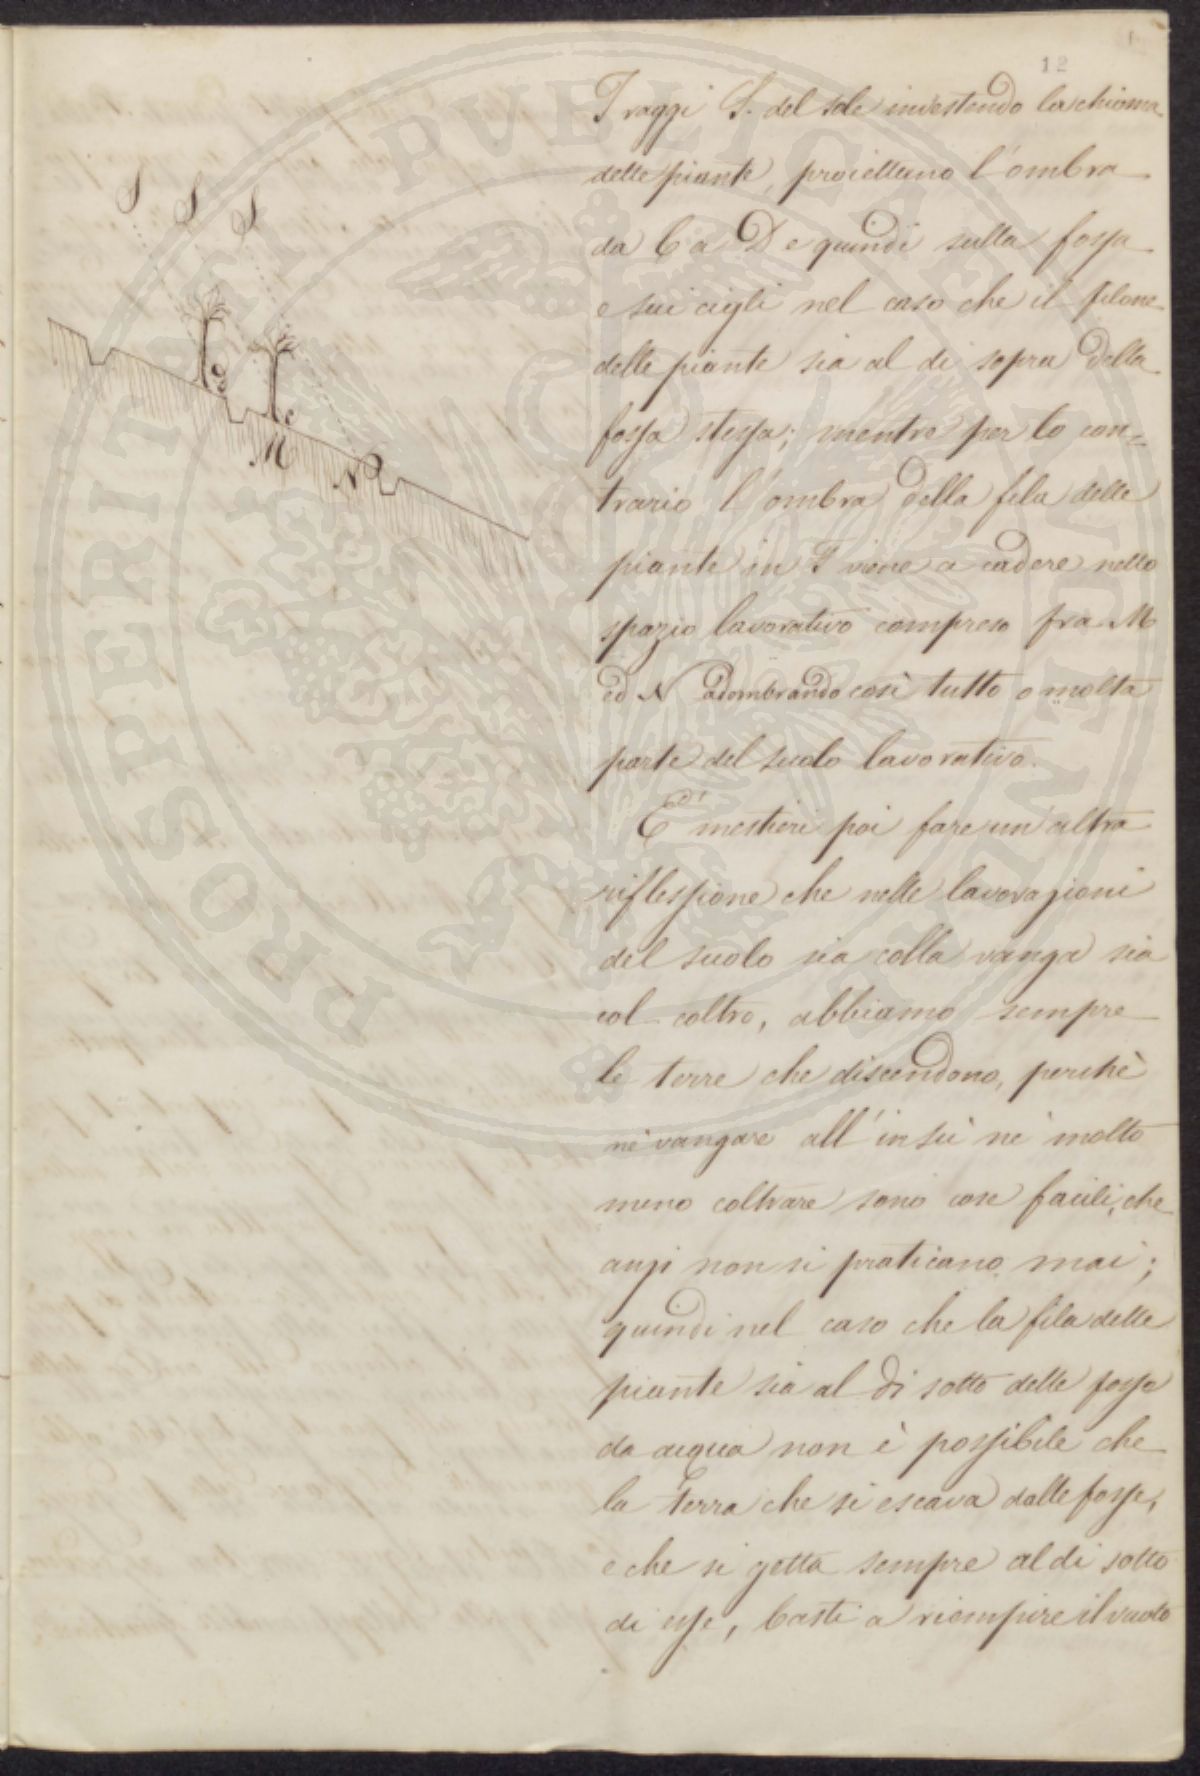 12
I raggi S. del sole investendo la chioma
delle piante, proiettano l'ombra
da C a D e quindi sulla fossa
e sui cigli nel caso che il filone
delle piante sia al di sopra della
fossa stessa; mentre per lo con=
trario l'ombra della fila delle
piante in F viene a cadere nello
spazio lavorativo compreso fra M
ed N adombrando così tutto o molta
parte del suolo lavorativo.
E' mestieri poi fare un'altra
riflessione che nelle lavorazioni
del suolo sia colla vanga sia
col coltro, abbiamo sempre
le terre che discendono, perchè
nè vangare all'insù nè molto
meno coltrare sono cose facili, che
anzi non si praticano mai;
quindi nel caso che la fila delle
piante sia al di sotto delle fosse
da acqua non è possibile che
la terra che si escava dalle fosse,
e che si getta sempre al di sotto
di esse, basti a riempire il vuoto
S S S
M
N
PROSPERITATI PVBLICAE AVGENDAE